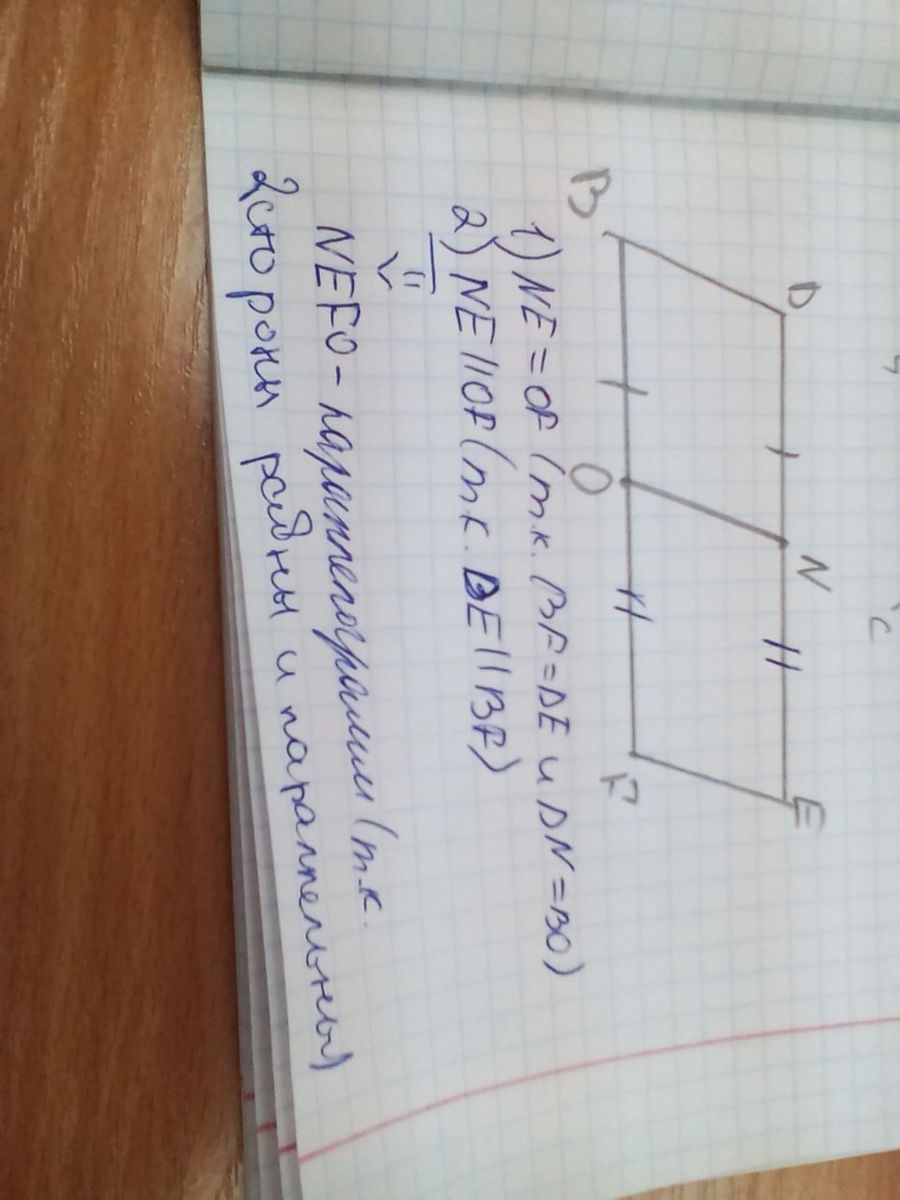 D N E
B O F
C
1) NE = OF (т.к. BF = DE и DN = BO)
2) NE || OF (т.к. DE || BF)
NEFO - параллелограмм (т.к.
2 стороны равны и параллельны)